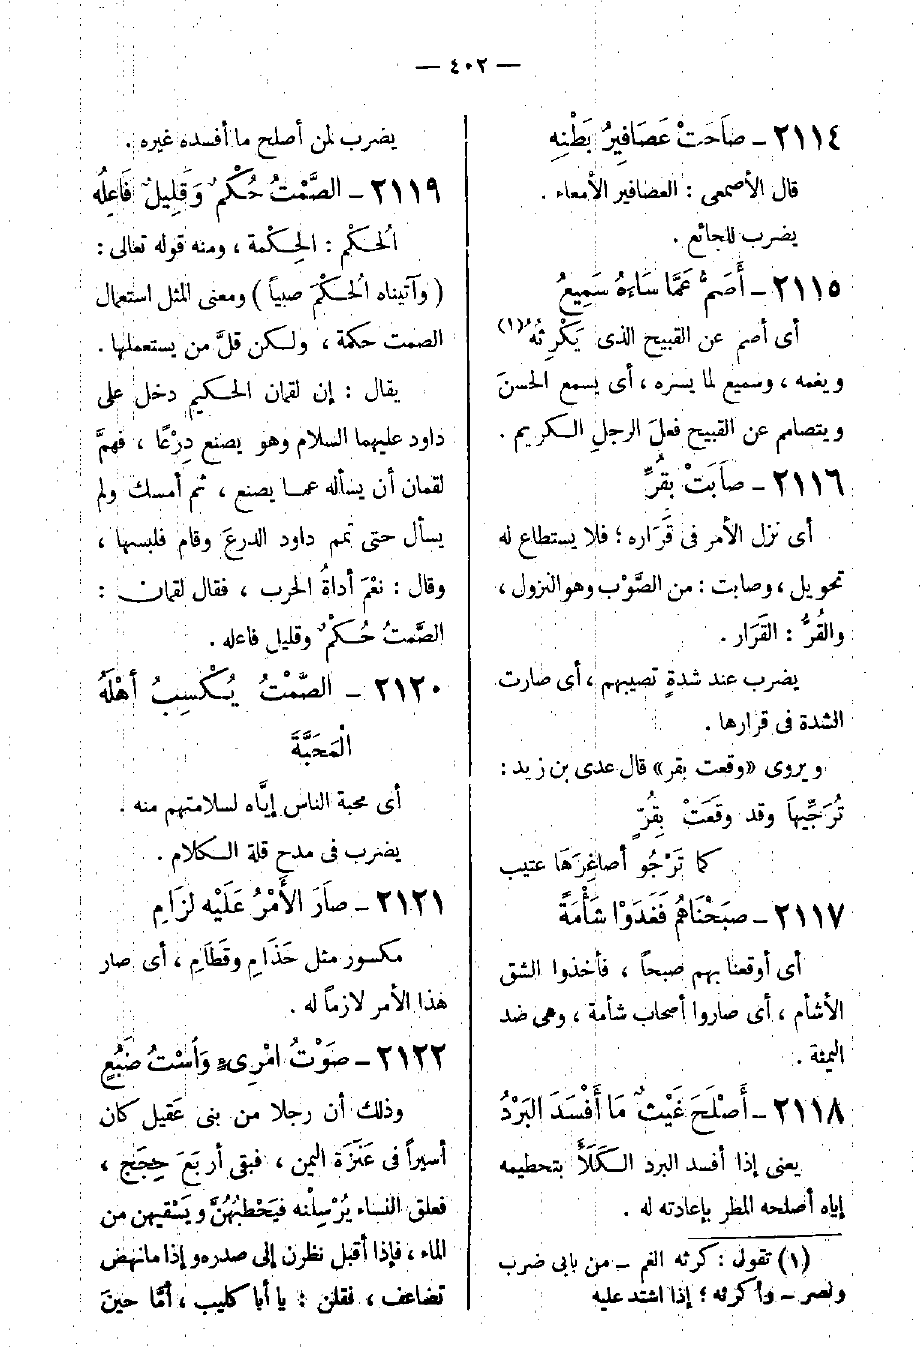 — ٤٠٢ —
٢١١٤ – صَاحَتْ عَصَافِيرُ بَطْنِهِ
قال الأصمعى : العصافير الأمعاء .
يضرب للجائع .
٢١١٥ – أَصَمُّ عَمَّا سَاءَهُ سَمِيعُ
أى أصم عن القبيح الذى يَكْرِثُهُ(١)
ويغمه ، وسميع لما يسره ، أى يسمع الحسنَ
ويتصامم عن القبيح فعلَ الرجلِ الكريم .
٢١١٦ – صَابَتْ بِقُرٍّ
أى نزل الأمر فى قَرَاره ؛ فلا يستطاع له
تحويل ، وصابت : من الصَّوْب وهو النزول ،
والقُرُّ : القَرَار .
يضرب عند شدةٍ تصيبهم ، أى صارت
الشدة فى قرارها .
ويروى «وقعت بقر» قال عدى بن زيد :
تُرَجِّيهَا وقد وقَعَتْ بِقُرٍّ
كما تَرْجُو أصاغِرَهَا عتيب
٢١١٧ – صبَحْنَاهُمْ فَغَدَوْا شَأْمَةً
أى أوقعنا بهم صبحاً ، فأخذوا الشق
الأشأم ، أى صاروا أصحاب شأمة ، وهى ضد
اليمنة .
٢١١٨ – أَصْلَحَ غَيْثٌ مَا أَفْسَدَ البَرْدُ
يعنى إذا أفسد البرد الكَلَأَ بتحطيمه
إياه أصلحه المطر بإعادته له .
(١) تقول : كرثه الغم – من بابى ضرب
ونصر – وأكرثه ؛ إذا اشتد عليه
يضرب لمن أصلح ما أفسده غيره .
٢١١٩ – الصَّمْتُ حُكْمٌ وَقَلِيلٌ فَاعِلُه
الُحكْم : الحِكْمة ، ومنه قوله تعالى :
( وآتيناه الُحكْمَ صبياً ) ومعنى المثل استعمال
الصمت حكمة ، ولكن قلَّ من يستعملها .
يقال : إن لقمان الحكيم دخل على
داود عليهما السلام وهو يصنع دِرْعًا ، فهمَّ
لقمان أن يسأله عما يصنع ، ثم أمسك ولم
يسأل حتى تمم داود الدرعَ وقام فلبسها ،
وقال : نعْمَ أداةُ الحرب ، فقال لقمان :
الصَّمتُ حُكْمٌ وقليل فاعله .
٢١٢٠ – الصَّمْتُ يُكْسِبُ أهْلَهُ
الْمَحَبَّةَ
أى محبة الناس إيَّاه لسلامتهم منه .
يضرب فى مدح قلة الكلام .
٢١٢١ – صَارَ الأَمْرُ عَلَيْه لزَامِ
مكسور مثل حَذَامِ وقَطَامِ ، أى صار
هذا الأمر لازماً له .
٢١٢٢ – صَوْتُ امْرِىءٍ وَاسْتُ ضَبُعٍ
وذلك أن رجلا من بنى عَقيل كان
أسيراً فى عَنَزَة اليمن ، فبقى أربَعَ حِجَج ،
فعلق النساء يُرْسِلْنه فيَحْطِبُهُنَّ ويَسْقيهن من
الماء ، فإذا أقبل نظرن إلى صدره وإذا مانهض
تضاعف ، فقلن : يا أبا كليب ، أمَّا حينَ